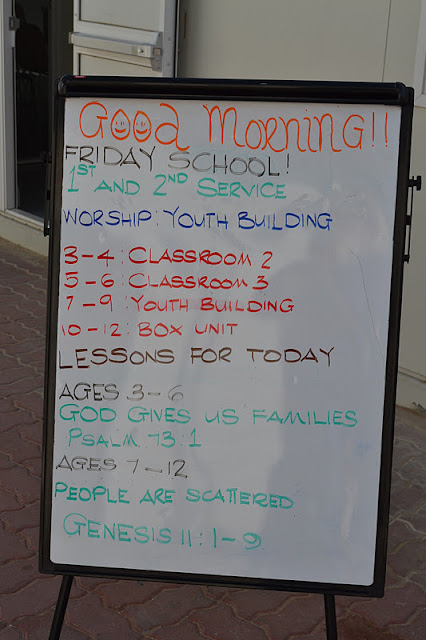 Good Morning!!
FRIDAY SCHOOL!
1ST AND 2ND SERVICE
WORSHIP: YOUTH BUILDING
3-4: CLASSROOM 2
5-6: CLASSROOM 3
7-9: YOUTH BUILDING
10-12: BOX UNIT
LESSONS FOR TODAY
AGES 3-6
GOD GIVES US FAMILIES
PSALM 73:1
AGES 7-12
PEOPLE ARE SCATTERED
GENESIS 11:1-9